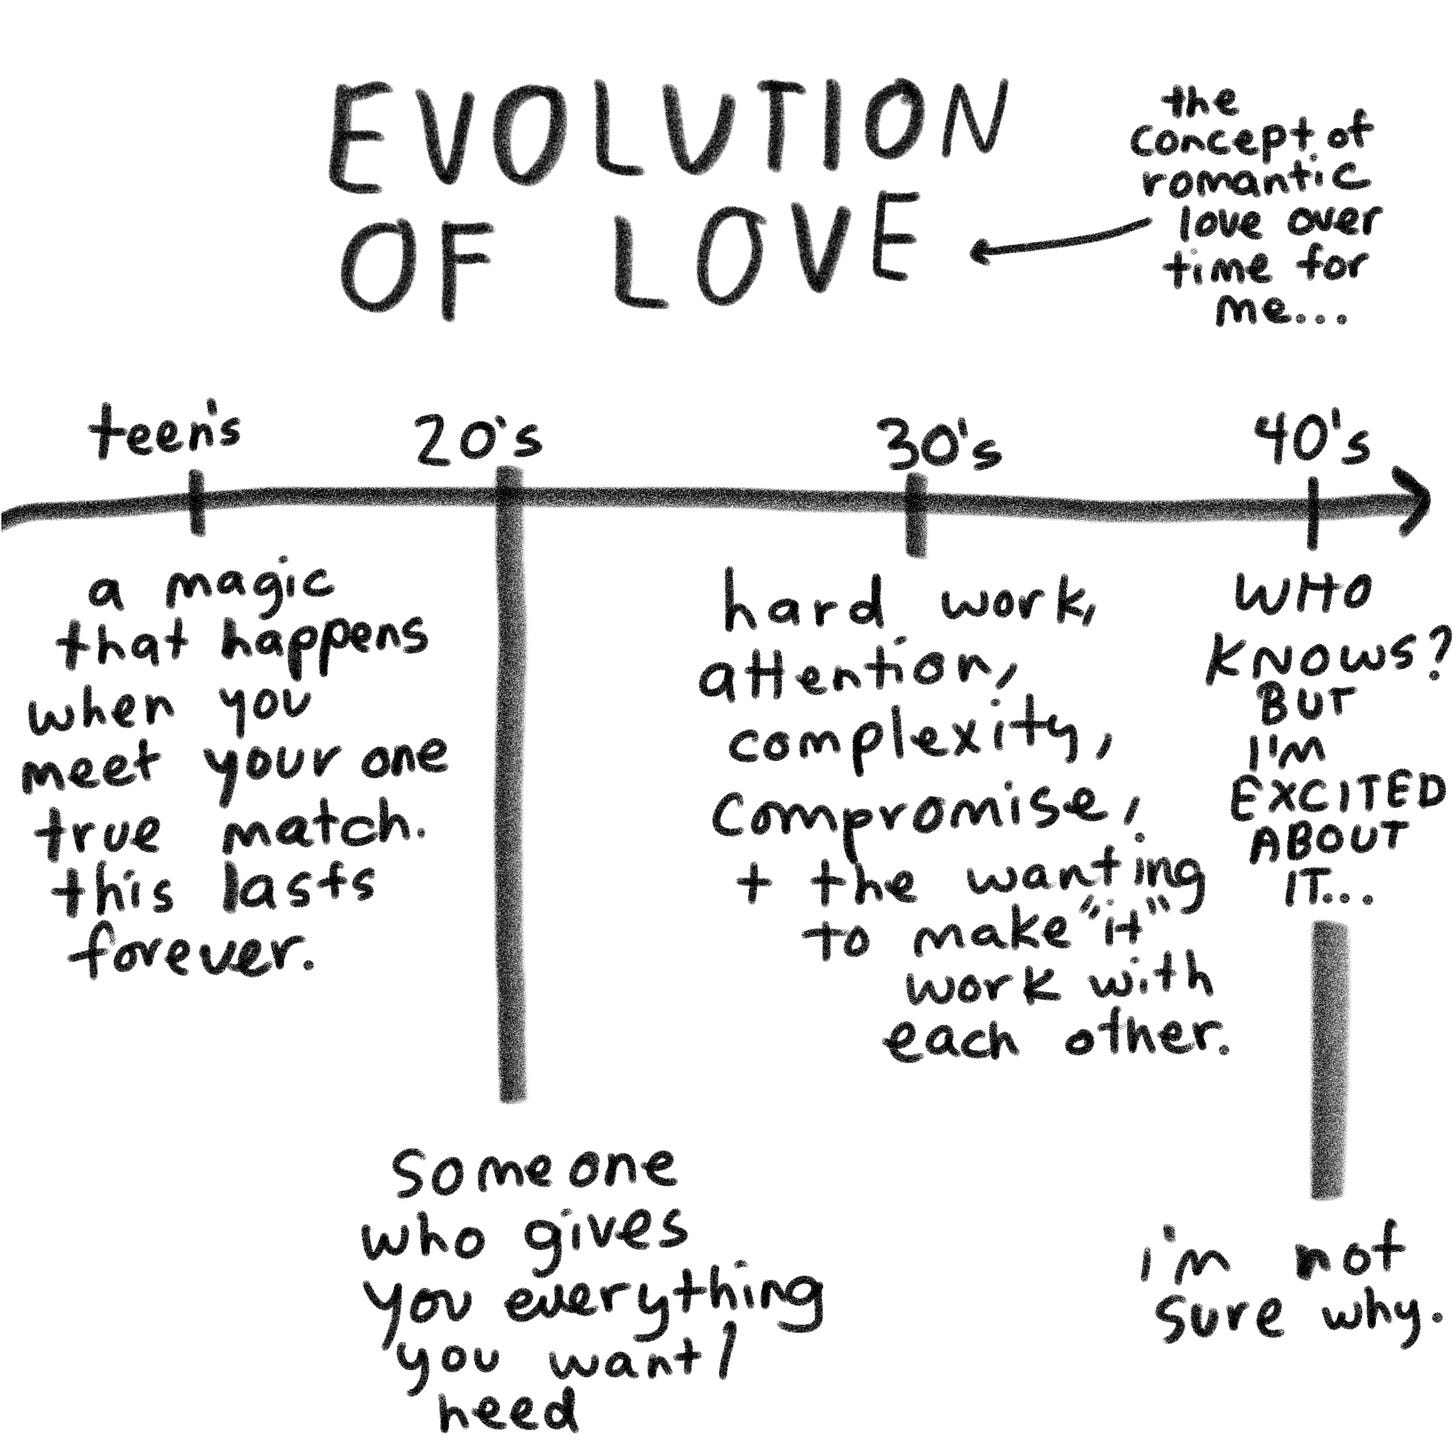 EVOLUTION
OF LOVE
the
concept of
romantic
love over
time for
me...
teen's
20's
30's
40's
a magic
that happens
when you
meet your one
true match.
this lasts
forever.
someone
who gives
you everything
you want/
need
hard work,
attention,
complexity,
compromise,
+ the wanting
to make "it"
work with
each other.
WHO
KNOWS?
BUT
I'M
EXCITED
ABOUT
IT...
i'm not
sure why.